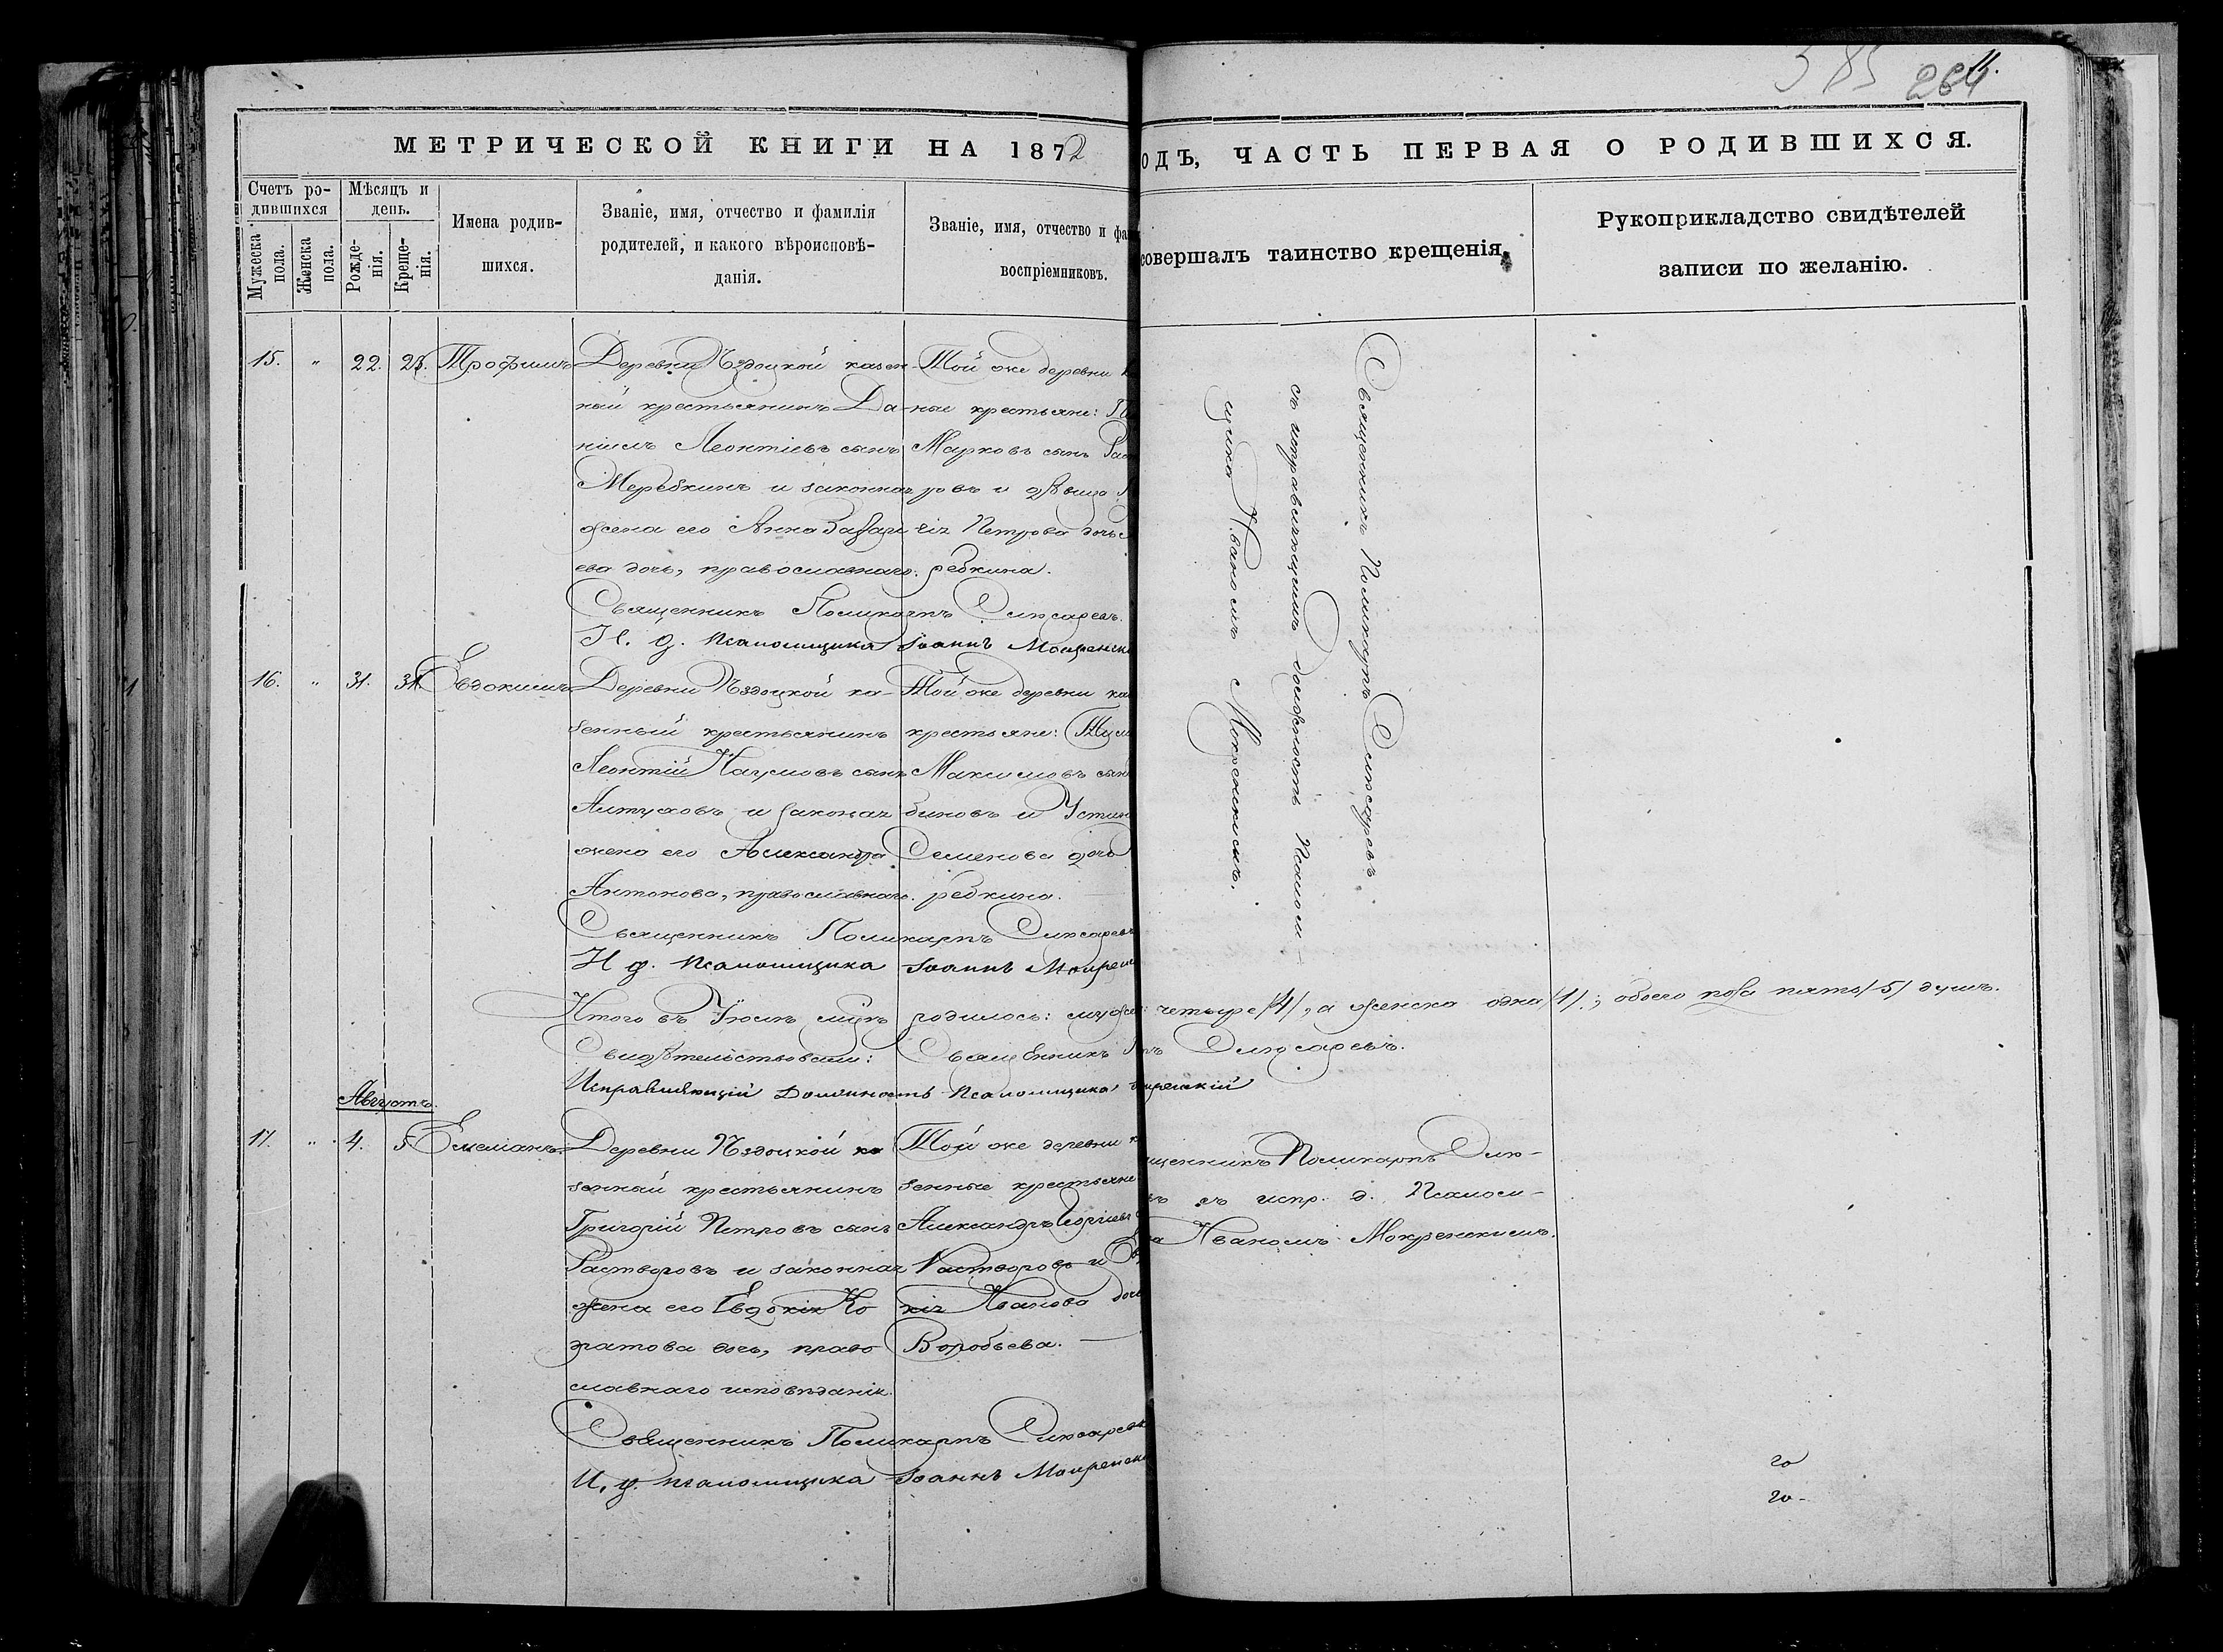 385 264 11.
МЕТРИЧЕСКОЙ КНИГИ НА 1872
ОДЪ, ЧАСТЬ ПЕРВАЯ О РОДИВШИХСЯ.
Счетъ родившихся
Мужеска пола.
Женска пола.
Мѣсяцъ и день.
Рожденія.
Крещенія.
Имена родив-
шихся.
Званіе, имя, отчество и фамилія
родителей, и какого вѣроисповѣ-
данія.
Званіе, имя, отчество и фа
воспріемниковъ.
совершалъ таинство крещенія.
Рукоприкладство свидѣтелей
записи по желанію.
15. " 22. 23. Трофимъ
Деревни Пздоцкой казен
ный крестьянинъ Да-
ніилъ Леонтіевъ сынъ
Меребкинъ и законная
жена его Анна Захарі
ева дочь, православнаго.
Той же деревни
ные крестьяне:
Марковъ сынъ Рас
ровъ и дѣвица
Петрова дочь
ребкина.
Священникъ Поликарпъ Слюсаревъ.
И. д. псаломщика Іоаннъ Мокренск
Священникъ Поликарпъ Слюсаревъ
съ исправляющимъ должность Псалом-
щика Иваномъ Мокренскимъ.
16. " 31. 31. Евдокимъ
Деревни Пздоцкой ка-
зенный крестьянинъ
Леонтій Наумовъ сынъ
Алтуховъ и законная
жена его Александра
Антонова, православнаго.
Той же деревни ка
крестьяне:
Максимовъ сынъ
биновъ и Устин
Семенова дочь
ребкина.
Священникъ Поликарпъ Слюсаревъ
И д. Псаломщика Іоаннъ Мокренс
Итого въ Іюлѣ мцѣ родилось: мужес: четыре /4/, а женска одна /1/; обоего пола пять /5/ душъ.
Свидѣтельствовали: Священникъ П пъ Слюсаревъ.
Исправляющій Должность Псаломщика кренскій
Августъ.
17. " 4. 5 Емеліанъ
Деревни Пздоцкой ка
зенный крестьянинъ
Григорій Петровъ сынъ
Растворовъ и законная
жена его Евдокія Ко
дратова дочь, право
славнаго исповѣданія.
Той же деревни к
зенные крестьяне
Александръ Георгіевъ
Растворовъ и Ев
кія Иванова дочь
Воробьева.
щенникъ Поликарпъ Слю-
въ съ испр. д. Псалом-
ка Иваномъ Мокренскимъ.
Священникъ Поликарпъ Слюсаревъ
И. д. псаломщика Іоаннъ Мокренск
го
го-